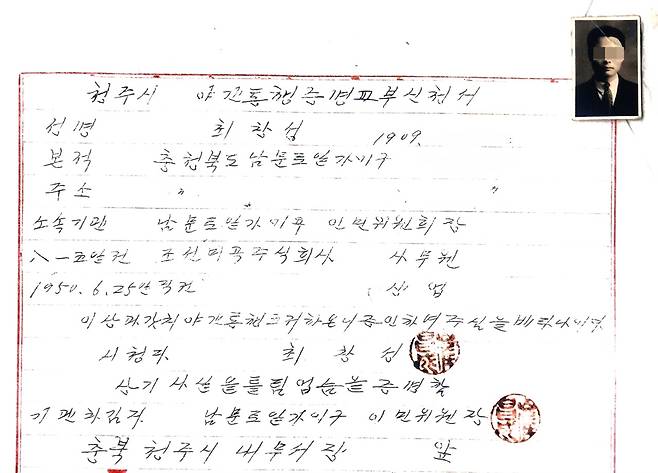 청주시 야간통행증명교부신청서
성명 최창섭 1909.
본적 충청북도 남문로일가이구
주소 〃 〃
소속기관 남문로일가이구 인민위원회장
八一五일전 조선미곡주식회사 사무원
1950.6.25만직전 상업
이상과 갓치 야간통행
시청자 최창성
상기 사실을 틀림 업슴을 증명함
기관책임자 남문로일가이구 인민위원장
충북 청주시 내무서장 앞